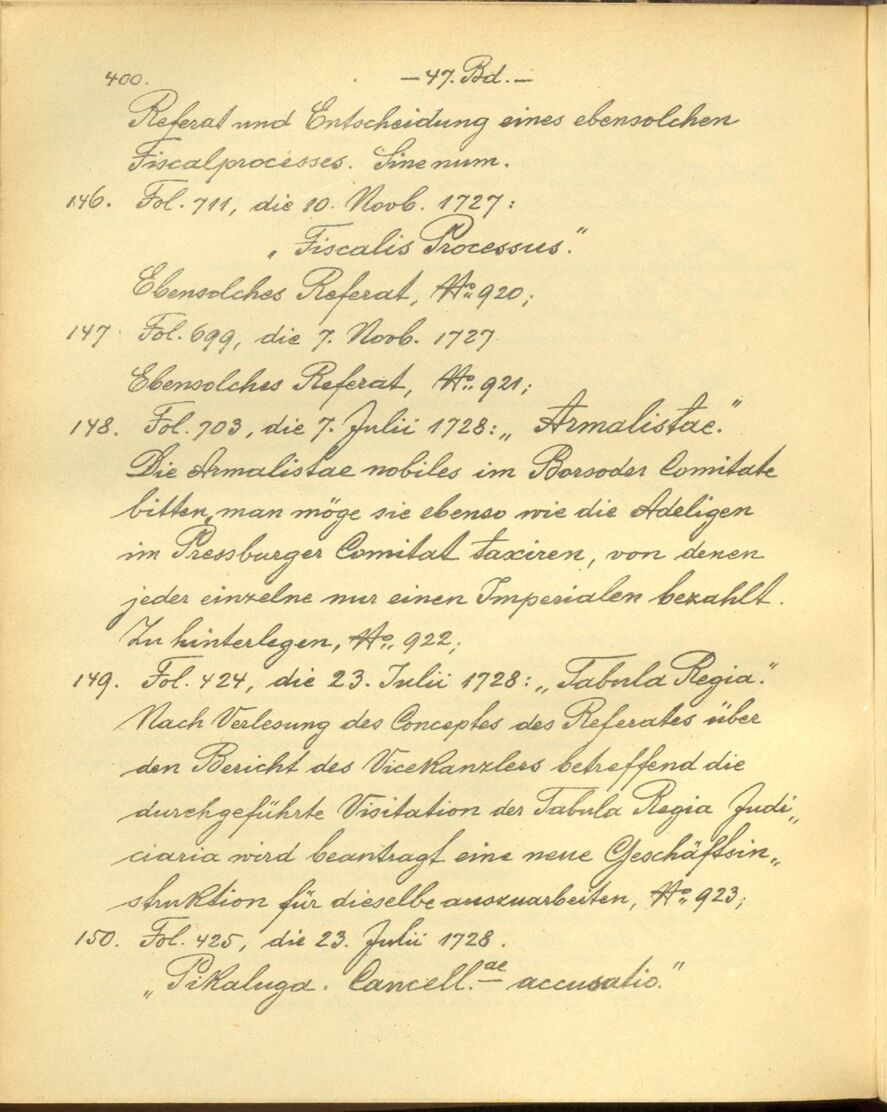 400. — 47. Bd. —
Referat und Entscheidung eines ebensolchen
Fiscalprocesses. Sine num.
146. Fol. 711, die 10. Novb. 1727:
„Fiscalis Processus."
Ebensolches Referat, No 920;
147 Fol. 699, die 7. Novb. 1727
Ebensolches Referat, No 921;
148. Fol. 703, die 7. Julii 1728: „Armalistae."
Die Armalistae nobiles im Borsoder Comitate
bitten, man möge sie ebenso wie die Adeligen
im Pressburger Comitat taxiren, von denen
jeder einzelne nur einen Imperialen bezahlt.
Zu hinterlegen, No 922;
149. Fol. 424, die 23. Julii 1728: „Tabula Regia."
Nach Verlesung des Conceptes des Referates über
den Bericht des Vicekanzlers betreffend die
durchgeführte Visitation der Tabula Regia Judi„
ciaria wird beantragt eine neue Geschäftsin„
struktion für dieselbe auszuarbeiten, No 923;
150. Fol. 425, die 23. Julii 1728.
„Pikaluga. Cancell.ae accusatio."